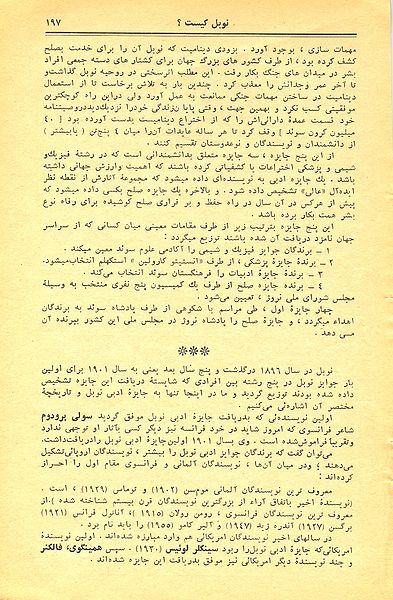 نوبل کیست ؟ ۱۹۷
مهمات سازی ، بوجود آورد . بزودی دینامیت که نوبل آن را برای خدمت بصلح
کشف کرده بود ، از طرف کشور های بزرگ جهان برای کشتار های دسته جمعی افراد
بشر در میدان های جنگ بکار رفت . این مطلب اثرسختی در روحیه نوبل گذاشت‌و
تا آخر عمر وجدانش را معذب کرد . چندین بار به تلاش برخاست تا از استعمال
دینامیت در ساختن مهمات جنگی ممانعت به عمل آورد ولی دراین راه کوچکترین
موفقیتی کسب نکرد و بهمین جهت ، وقتی پایان زندگی خودرا نزدیك‌دیددروصیتنامه
خود قسمت عمدهٔ دارائی‌اش را که از اختراع دینامیت بدست آورده بود [ ۴۰
میلیون کرون سوئد ] وقف کرد تا هر ساله عایدات آنرا میان ۵ پنج‌تن (یابیشتر )
از دانشمندان و نویسندگان و نوعدوستان تقسیم کنند .
از این پنج جایزه ، سه جایزه متعلق بدانشمندانی است که در رشتهٔ فیزیك‌و
شیمی و پزشکی اختراعات یا کشفیاتی کرده باشند که اهمیت وارزش جهانی داشته
باشد . یك جایزه ادبی به نویسنده‌ای داده میشود که مجموعه آثارش از نقطه نظر
ایده‌آل «عالی» تشخیص داده شود . و بالاخره یك جایزه صلح بکسی داده میشود که
پیش از هرکس در آن سال در راه حفظ و بر قراری صلح کوشیده برای رفاه نوع
بشر همت بکار برده باشد .
این پنج جایزه بترتیب زیر از طرف مقامات معینی میان کسانی که از سراسر
جهان نامزد دریافت آن شده باشند توزیع میگردد :
۱ – برندگان جوایز فیزیك و شیمی را آکادمی علوم سوئد معین میکند .
۲ – برندهٔ جایزهٔ پزشکی ، از طرف «انستیتو کارولین » استکهلم انتخاب‌میشود.
۳ – برنده جایزهٔ ادبیات را فرهنگستان سوئد انتخاب می‌کند .
۴ – برنده جایزه صلح از طرف یك کمیسیون پنج نفری منتخب به وسیلهٔ
مجلس شورای ملی نروژ ، تعیین می‌شود .
چهار جایزهٔ اول ، طی مراسم با شکوهی از طرف پادشاه سوئد به برندگان
اهداء میگردد ، و جایزهٔ صلح را پادشاه نروژ در مجلس ملی این کشور ببرنده آن
می دهد .
***
نوبل در سال ۱۸۹۶ درگذشت و پنج سال بعد یعنی به سال ۱۹۰۱ برای اولین
بار جوایز نوبل در پنج رشته بین افرادی که شایستهٔ دریافت این جایزه تشخیص
داده شده بودند توزیع گردید و ما در اینجا تنها به جایزهٔ ادبی نوبل و تاریخچهٔ
مختصر آن اشاره‌ئی می‌کنیم .
اولین نویسنده‌ئی که بدریافت جایزهٔ ادبی نوبل موفق گردید سولی پرودوم
شاعر فرانسوی که امروز شاید در خود فرانسه نیز دیگر کسی بآثار او توجهی ندارد
وتقریباً فراموش‌شده است . وی بسال ۱۹۰۱ اولین‌جایزهٔ ادبی نوبل رادریافت‌داشت.
می‌توان گفت که برندگان جوایز ادبی نوبل را بیشتر ، نویسندگان اروپائی‌تشکیل
می‌دهند ؛ ودر میان آن‌ها ، نویسندگان آلمانی و فرانسوی مقام اول را احراز
کرده‌اند :
معروف ترین نویسندگان آلمانی مومسن (۱۹۰۲) و توماس (۱۹۲۹) ، است .
(نویسندهٔ اخیر باتفاق آراء از بزرگترین نویسندگان قرن بیستم شناخته شده ).از
معروف ترین نویسندگان فرانسوی ، رومن رولان (۱۹۱۵ )، آناتول فرانس (۱۹۲۱)
برگسن (۱۹۲۷) آندره ژید (۱۹۴۷) و آلبر کامو (۱۹۵۵) را باید نام برد .
در سالهای اخیر نویسندگان امریکائی هم وارد مبارزه شده‌اند . اولین نویسندهٔ
امریکائی‌که جایزهٔ ادبی نوبل‌را ربود سینکلر لوئیس (۱۹۳۰) . سپس همینگوی، فالکنر
و چند نویسندهٔ دیگر امریکائی نیز موفق بدریافت این جایزه شده‌اند .